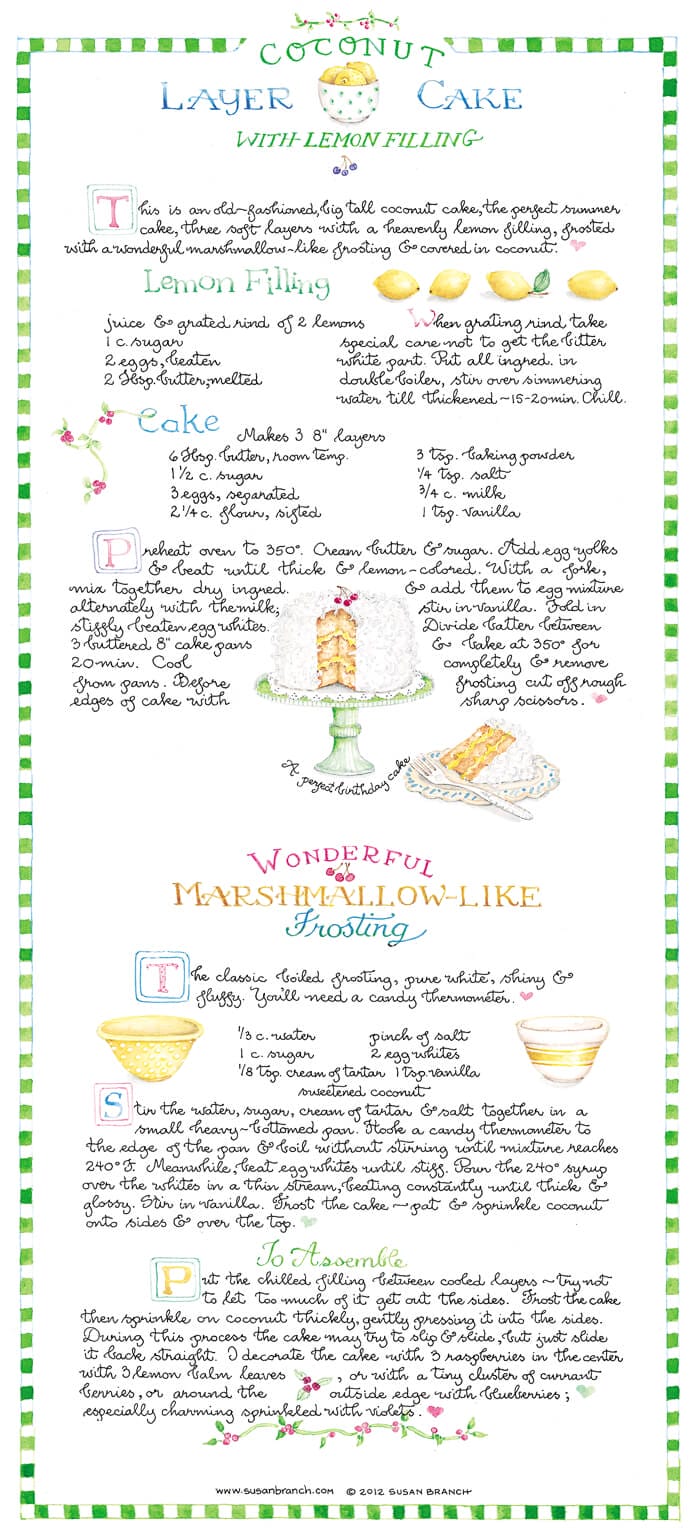 COCONUT
LAYER CAKE
WITH LEMON FILLING
This is an old-fashioned, big tall coconut cake, the perfect summer
cake, three soft layers with a heavenly lemon filling, frosted
with a wonderful marshmallow-like frosting & covered in coconut.
Lemon Filling
juice & grated rind of 2 lemons
1 c. sugar
2 eggs, beaten
2 Tbsp. butter, melted
When grating rind take
special care not to get the bitter
white part. Put all ingred. in
double boiler, stir over simmering
water till thickened ~ 15-20 min. Chill.
Cake
Makes 3 8" layers
6 Tbsp. butter, room temp.
1 1/2 c. sugar
3 eggs, separated
2 1/4 c. flour, sifted
3 tsp. baking powder
1/4 tsp. salt
3/4 c. milk
1 tsp. vanilla
Preheat oven to 350°. Cream butter & sugar. Add egg yolks
& beat until thick & lemon-colored. With a fork,
mix together dry ingred. & add them to egg mixture
alternately with the milk; stir in vanilla. Fold in
stiffly beaten egg whites. Divide batter between
3 buttered 8" cake pans & bake at 350° for
20 min. Cool completely & remove
from pans. Before frosting cut off rough
edges of cake with sharp scissors.
A perfect birthday cake
WONDERFUL
MARSHMALLOW-LIKE
Frosting
The classic boiled frosting, pure white, shiny &
fluffy. You'll need a candy thermometer.
1/3 c. water
1 c. sugar
1/8 tsp. cream of tartar
pinch of salt
2 egg whites
1 tsp. vanilla
sweetened coconut
Stir the water, sugar, cream of tartar & salt together in a
small heavy-bottomed pan. Hook a candy thermometer to
the edge of the pan & boil without stirring until mixture reaches
240° F. Meanwhile, beat egg whites until stiff. Pour the 240° syrup
over the whites in a thin stream, beating constantly until thick &
glossy. Stir in vanilla. Frost the cake ~ pat & sprinkle coconut
onto sides & over the top.
To Assemble
Put the chilled filling between cooled layers ~ try not
to let too much of it get out the sides. Frost the cake
then sprinkle on coconut thickly, gently pressing it into the sides.
During this process the cake may try to slip & slide, but just slide
it back straight. I decorate the cake with 3 raspberries in the center
with 3 lemon balm leaves , or with a tiny cluster of currant
berries, or around the outside edge with blueberries;
especially charming sprinkled with violets.
www.susanbranch.com © 2012 SUSAN BRANCH